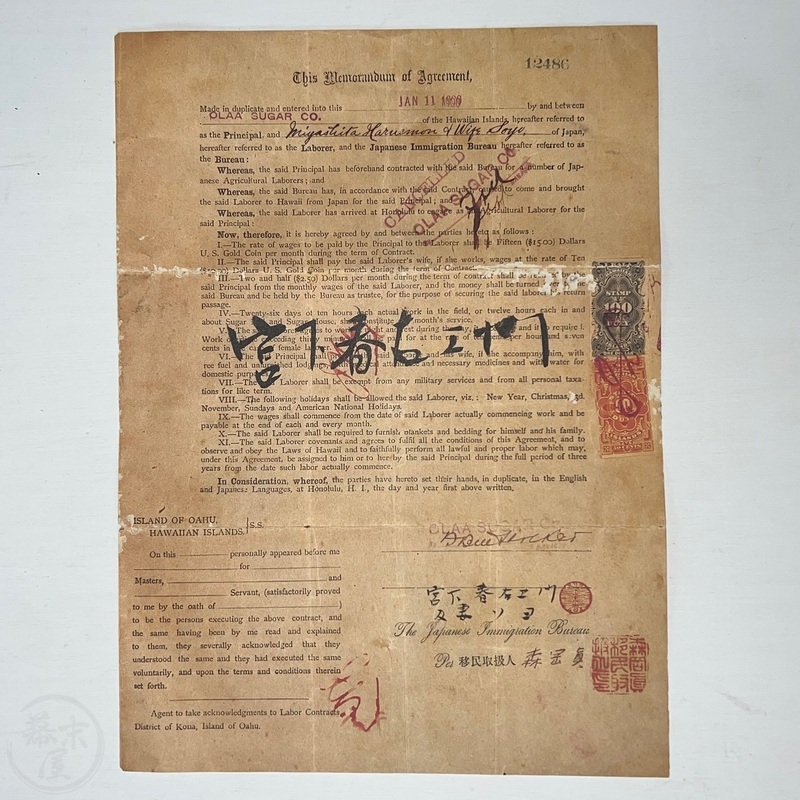 12486
This Memorandum of Agreement,
Made in duplicate and entered into this JAN 11 by and between
OLAA SUGAR CO. of the Hawaiian Islands, hereafter referred to
as the Principal, and Miyashita Haruemon & Wife Soyo of Japan,
hereafter referred to as the Laborer, and the Japanese Immigration Bureau hereafter referred to as
the Bureau:
Whereas, the said Principal has beforehand contracted with the said Bureau for a number of Jap-
anese Agricultural Laborers; and
Whereas, the said Bureau has, in accordance with the said Contract to come and brought
the said Laborer to Hawaii from Japan for the said Principal; and
Whereas, the said Laborer has arrived at Honolulu to engage as Agricultural Laborer for the
said Principal:
CANCELLED
OLAA SUGAR CO
Now, therefore, it is hereby agreed by and between the parties hereto as follows:
I.—The rate of wages to be paid by the Principal to the Laborer shall be Fifteen ($15.00) Dollars
U. S. Gold Coin per month during the term of Contract.
II.—The said Principal shall pay the said Laborer's wife, if she works, wages at the rate of Ten
Dollars U. S. Gold Coin per month during the term of Contract
III.—Two and half ($2.50) Dollars per month during the term of contract shall be
said Principal from the monthly wages of the said Laborer, and the money shall be turned
said Bureau and be held by the Bureau as trustee, for the purpose of securing the said laborer return
passage.
IV.—Twenty-six days of ten hours each actual work in the field, or twelve hours each in and
about Sugar and Sugar House, constitute month's service.
宮下春右エ門
STAMP
100
VI. Principal if accompany him, with
free fuel and and necessary medicines and water for
domestic purpose
VII.—The Laborer shall be exempt from any military services and from all personal taxa-
tions for like term.
VIII.—The following holidays shall be allowed the said Laborer, viz.: New Year, Christmas, 3d.
November, Sundays and American National Holidays.
IX.—The wages shall commence from the date of said Laborer actually commencing work and be
payable at the end of each and every month.
X.—The said Laborer shall be required to furnish blankets and bedding for himself and his family.
XI.—The said Laborer covenants and agrees to fulfil all the conditions of this Agreement, and to
observe and obey the Laws of Hawaii and to faithfully perform all lawful and proper labor which may,
under this Agreement, be assigned to him or to her by the said Principal during the full period of three
years from the date such labor actually commence.
In Consideration, whereof, the parties have hereto set their hands, in duplicate, in the English
and Japanese Languages, at Honolulu, H. I., the day and year first above written,
ISLAND OF OAHU,
HAWAIIAN ISLANDS. S.S.
On this personally appeared before me
for
Masters, and
Servant, (satisfactorily proved
to me by the oath of )
to be the persons executing the above contract, and
the same having been by me read and explained
to them, they severally acknowledged that they
understood the same and they had executed the same
voluntarily, and upon the terms and conditions therein
set forth.
Agent to take acknowledgments to Labor Contracts,
District of Kona, Island of Oahu.
OLAA SUGAR CO.
宮下春右エ門
及妻ソヨ
The Japanese Immigration Bureau
Per 移民取扱人 森岡真
幕末屋